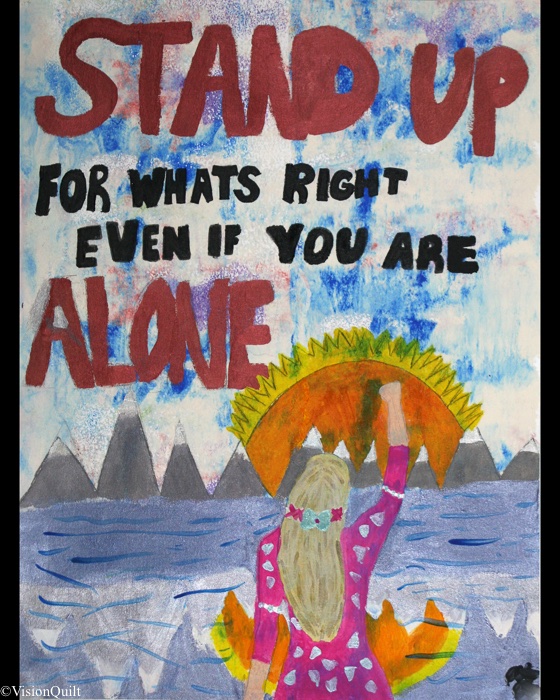 STAND UP
FOR WHATS RIGHT
EVEN IF YOU ARE
ALONE
©VisionQuilt